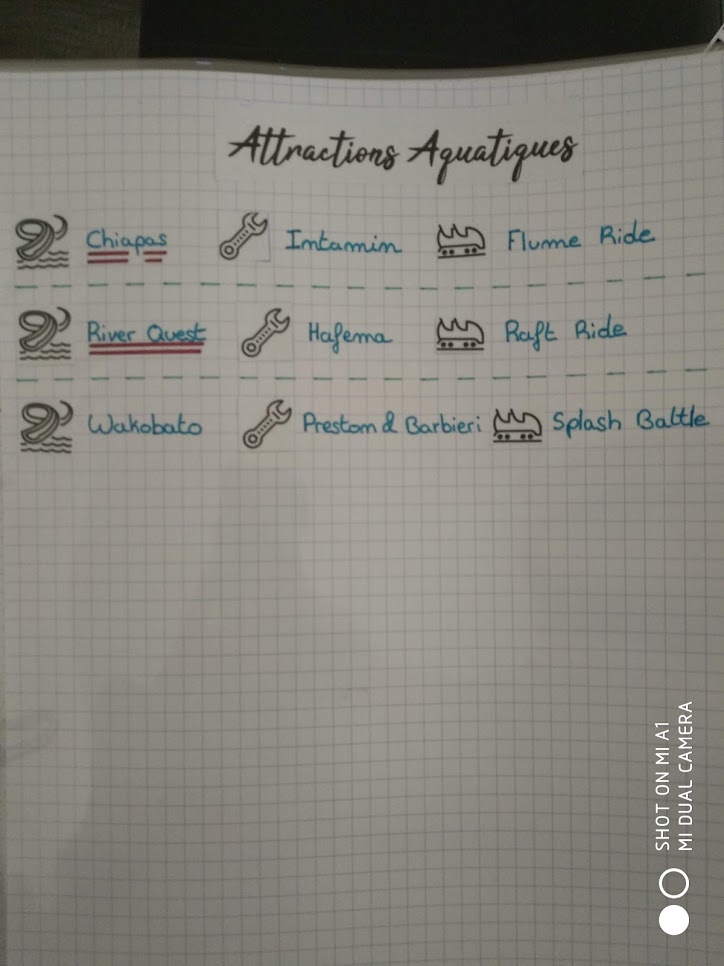 Attractions Aquatiques
Chiapas Intamin Flume Ride
River Quest Hafema Raft Ride
Wakobato Preston & Barbieri Splash Battle
SHOT ON MI A1
MI DUAL CAMERA